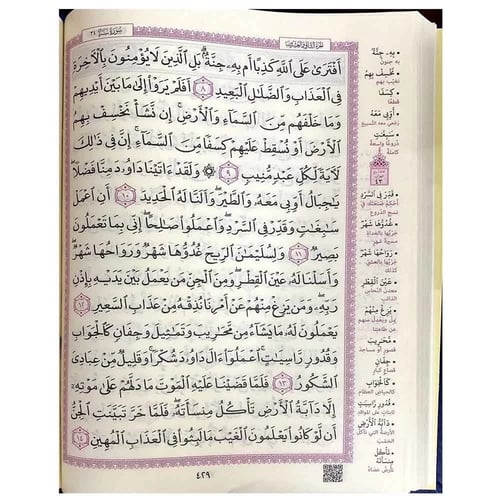 سورة سبإ ٣٤
الجزء الثاني والعشرون
أَفْتَرَىٰ عَلَى ٱللَّهِ كَذِبًا أَم بِهِۦ جِنَّةُۢ ۗ بَلِ ٱلَّذِينَ لَا يُؤْمِنُونَ بِٱلْءَاخِرَةِ
فِى ٱلْعَذَابِ وَٱلضَّلَٰلِ ٱلْبَعِيدِ ٨ أَفَلَمْ يَرَوْا۟ إِلَىٰ مَا بَيْنَ أَيْدِيهِمْ
وَمَا خَلْفَهُم مِّنَ ٱلسَّمَآءِ وَٱلْأَرْضِ ۚ إِن نَّشَأْ نَخْسِفْ بِهِمُ
ٱلْأَرْضَ أَوْ نُسْقِطْ عَلَيْهِمْ كِسَفًا مِّنَ ٱلسَّمَآءِ ۚ إِنَّ فِى ذَٰلِكَ
لَءَايَةً لِّكُلِّ عَبْدٍ مُّنِيبٍ ٩ ۞ وَلَقَدْ ءَاتَيْنَا دَاوُۥدَ مِنَّا فَضْلًا ۖ
يَٰجِبَالُ أَوِّبِى مَعَهُۥ وَٱلطَّيْرَ ۖ وَأَلَنَّا لَهُ ٱلْحَدِيدَ ١٠ أَنِ ٱعْمَلْ
سَٰبِغَٰتٍ وَقَدِّرْ فِى ٱلسَّرْدِ ۖ وَٱعْمَلُوا۟ صَٰلِحًا ۖ إِنِّى بِمَا تَعْمَلُونَ
بَصِيرٌ ١١ وَلِسُلَيْمَٰنَ ٱلرِّيحَ غُدُوُّهَا شَهْرٌ وَرَوَاحُهَا شَهْرٌ ۖ
وَأَسَلْنَا لَهُۥ عَيْنَ ٱلْقِطْرِ ۖ وَمِنَ ٱلْجِنِّ مَن يَعْمَلُ بَيْنَ يَدَيْهِ بِإِذْنِ
رَبِّهِۦ ۖ وَمَن يَزِغْ مِنْهُمْ عَنْ أَمْرِنَا نُذِقْهُ مِنْ عَذَابِ ٱلسَّعِيرِ ١٢
يَعْمَلُونَ لَهُۥ مَا يَشَآءُ مِن مَّحَٰرِيبَ وَتَمَٰثِيلَ وَجِفَانٍ كَٱلْجَوَابِ
وَقُدُورٍ رَّاسِيَٰتٍ ۚ ٱعْمَلُوٓا۟ ءَالَ دَاوُۥدَ شُكْرًا ۚ وَقَلِيلٌ مِّنْ عِبَادِىَ
ٱلشَّكُورُ ١٣ فَلَمَّا قَضَيْنَا عَلَيْهِ ٱلْمَوْتَ مَا دَلَّهُمْ عَلَىٰ مَوْتِهِۦٓ
إِلَّا دَآبَّةُ ٱلْأَرْضِ تَأْكُلُ مِنسَأَتَهُۥ ۖ فَلَمَّا خَرَّ تَبَيَّنَتِ ٱلْجِنُّ
أَن لَّوْ كَانُوا۟ يَعْلَمُونَ ٱلْغَيْبَ مَا لَبِثُوا۟ فِى ٱلْعَذَابِ ٱلْمُهِينِ ١٤
٤٢٩
• بِهِ جِنَّةٌ
به جنون
• نَخْسِف بِهِمُ
نغيّب بهم
• كِسَفًا
قطعًا
• أَوِّبِي مَعَهُ
رجّعي معه التسبيح
• سَابِغَاتٍ
دروعًا واسعة
كاملة
• قَدِّرْ فِي السَّرْدِ
نسج الدروع
• غُدُوُّهَا شَهْرٌ
جريها بالغداة
مسيرة شهر
• رَوَاحُهَا شَهْرٌ
جريها بالعشي
كذلك
• عَيْنَ الْقِطْرِ
معدن النحاس
الذائب
• يَزِغْ مِنْهُمْ
يمل ويعدل منهم
عن طاعتنا
• مَحَارِيبَ
قصور أو مساجد
• جِفَانٍ
قصاع كبار
• كَالْجَوَابِ
كالحياض العظام
• قُدُورٍ رَاسِيَاتٍ
ثابتات على المواقد
• دَابَّةُ الْأَرْضِ
الأرضة التي تأكل
الخشب
• تَأْكُلُ
مِنسَأَتَهُ
تأرض عصاه